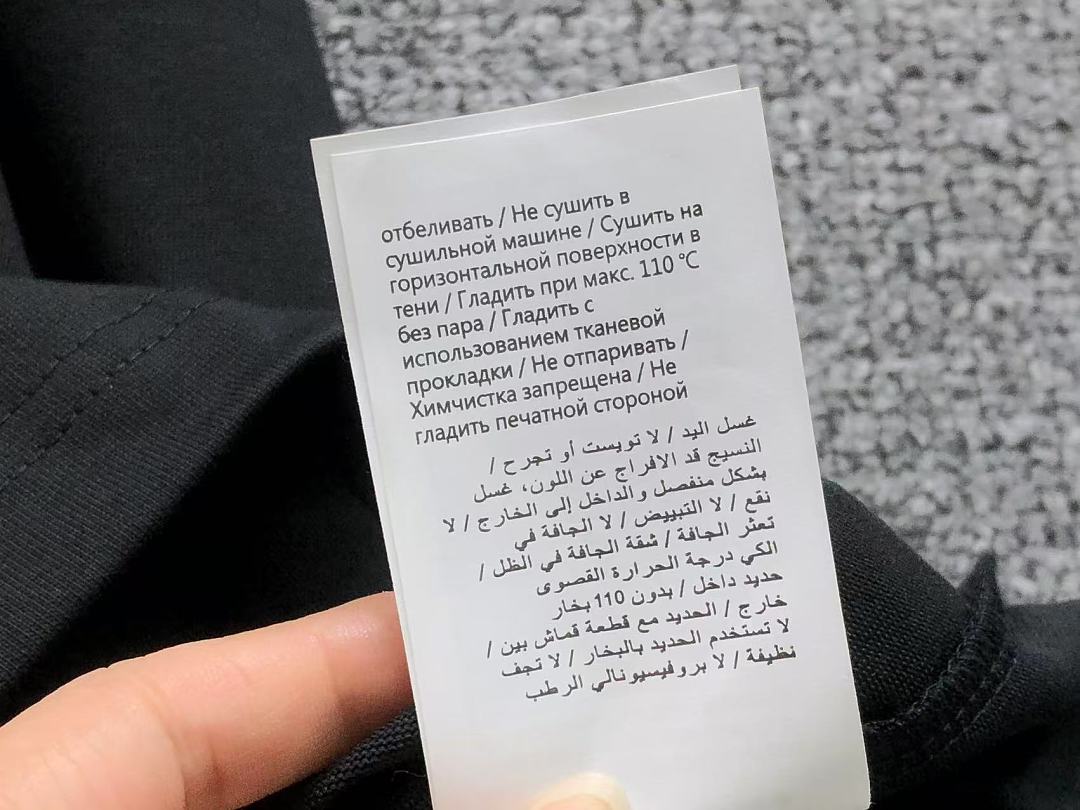 отбеливать / Не сушить в
сушильной машине / Сушить на
горизонтальной поверхности в
тени / Гладить при макс. 110 °C
без пара / Гладить с
использованием тканевой
прокладки / Не отпаривать /
Химчистка запрещена / Не
гладить печатной стороной
غسل اليد / لا تويست أو تجرح /
النسيج قد الافراج عن اللون، غسل
بشكل منفصل والداخل إلى الخارج / لا
نقع / لا التبييض / لا الجافة في
تعثر الجافة / شقة الجافة في الظل /
الكي درجة الحرارة القصوى
حديد داخل / بدون 110 بخار
خارج / الحديد مع قطعة قماش بين /
لا تستخدم الحديد بالبخار / لا تجف
نظيفة / لا بروفيسيونالي الرطب